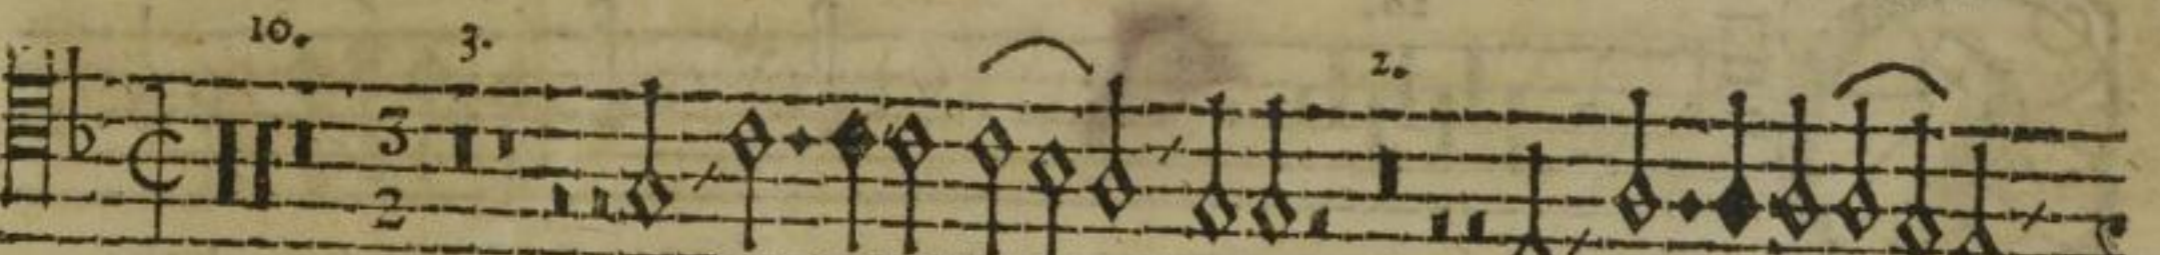 10. 3. 2.
3
2